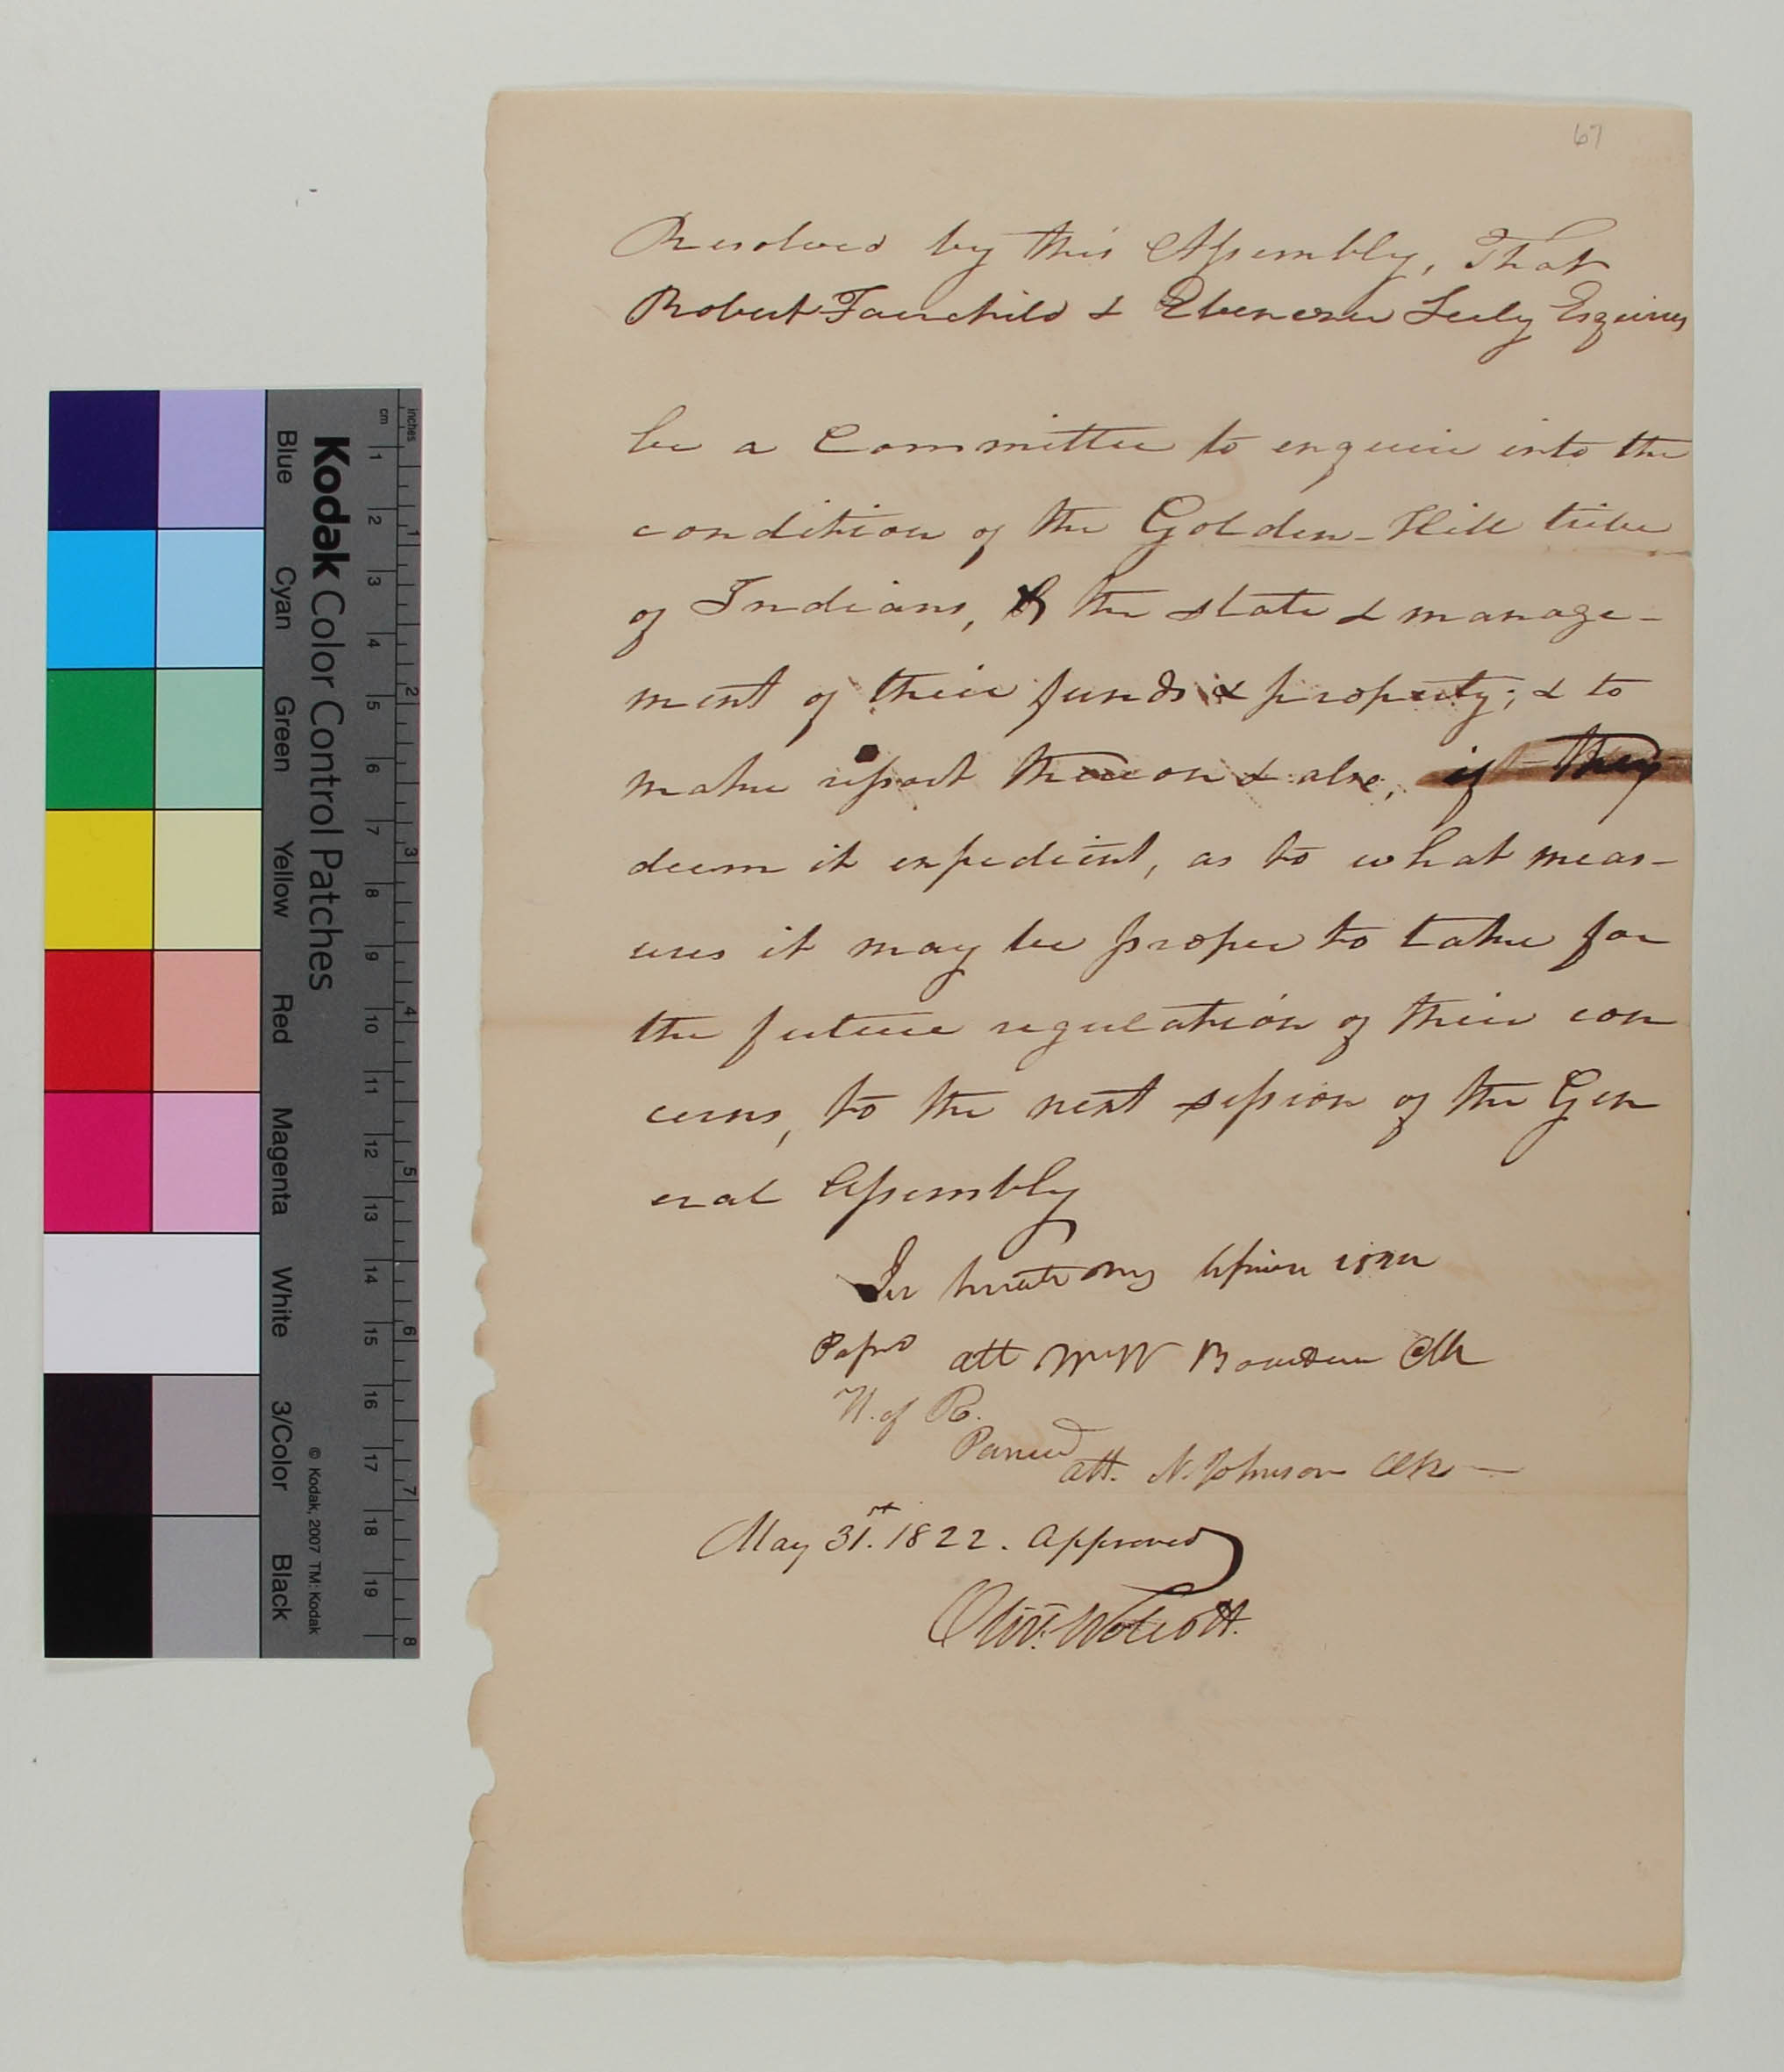 67
Resolved by this Assembly, That
Robert Fairchild & Ebenezer Seely Esquires
be a Committee to enquire into the
condition of the Golden-Hill tribe
of Indians, & the state & manage-
ment of their funds & property; & to
make report thereon & also, if they
deem it expedient, as to what meas-
ures it may be proper to take for
the future regulation of their con
cerns, to the next session of the Gen
eral Assembly
Passd att Clk
H. of R.
Passed
att. N. Johnson Clk
May 31.st 1822. Approved
Oliv. Wolcott.
inches
cm
1 2 3 4 5 6 7 8 9 10 11 12 13 14 15 16 17 18 19
1 2 3 4 5 6 7 8
Kodak Color Control Patches
© Kodak, 2007 TM: Kodak
Blue Cyan Green Yellow Red Magenta White 3/Color Black